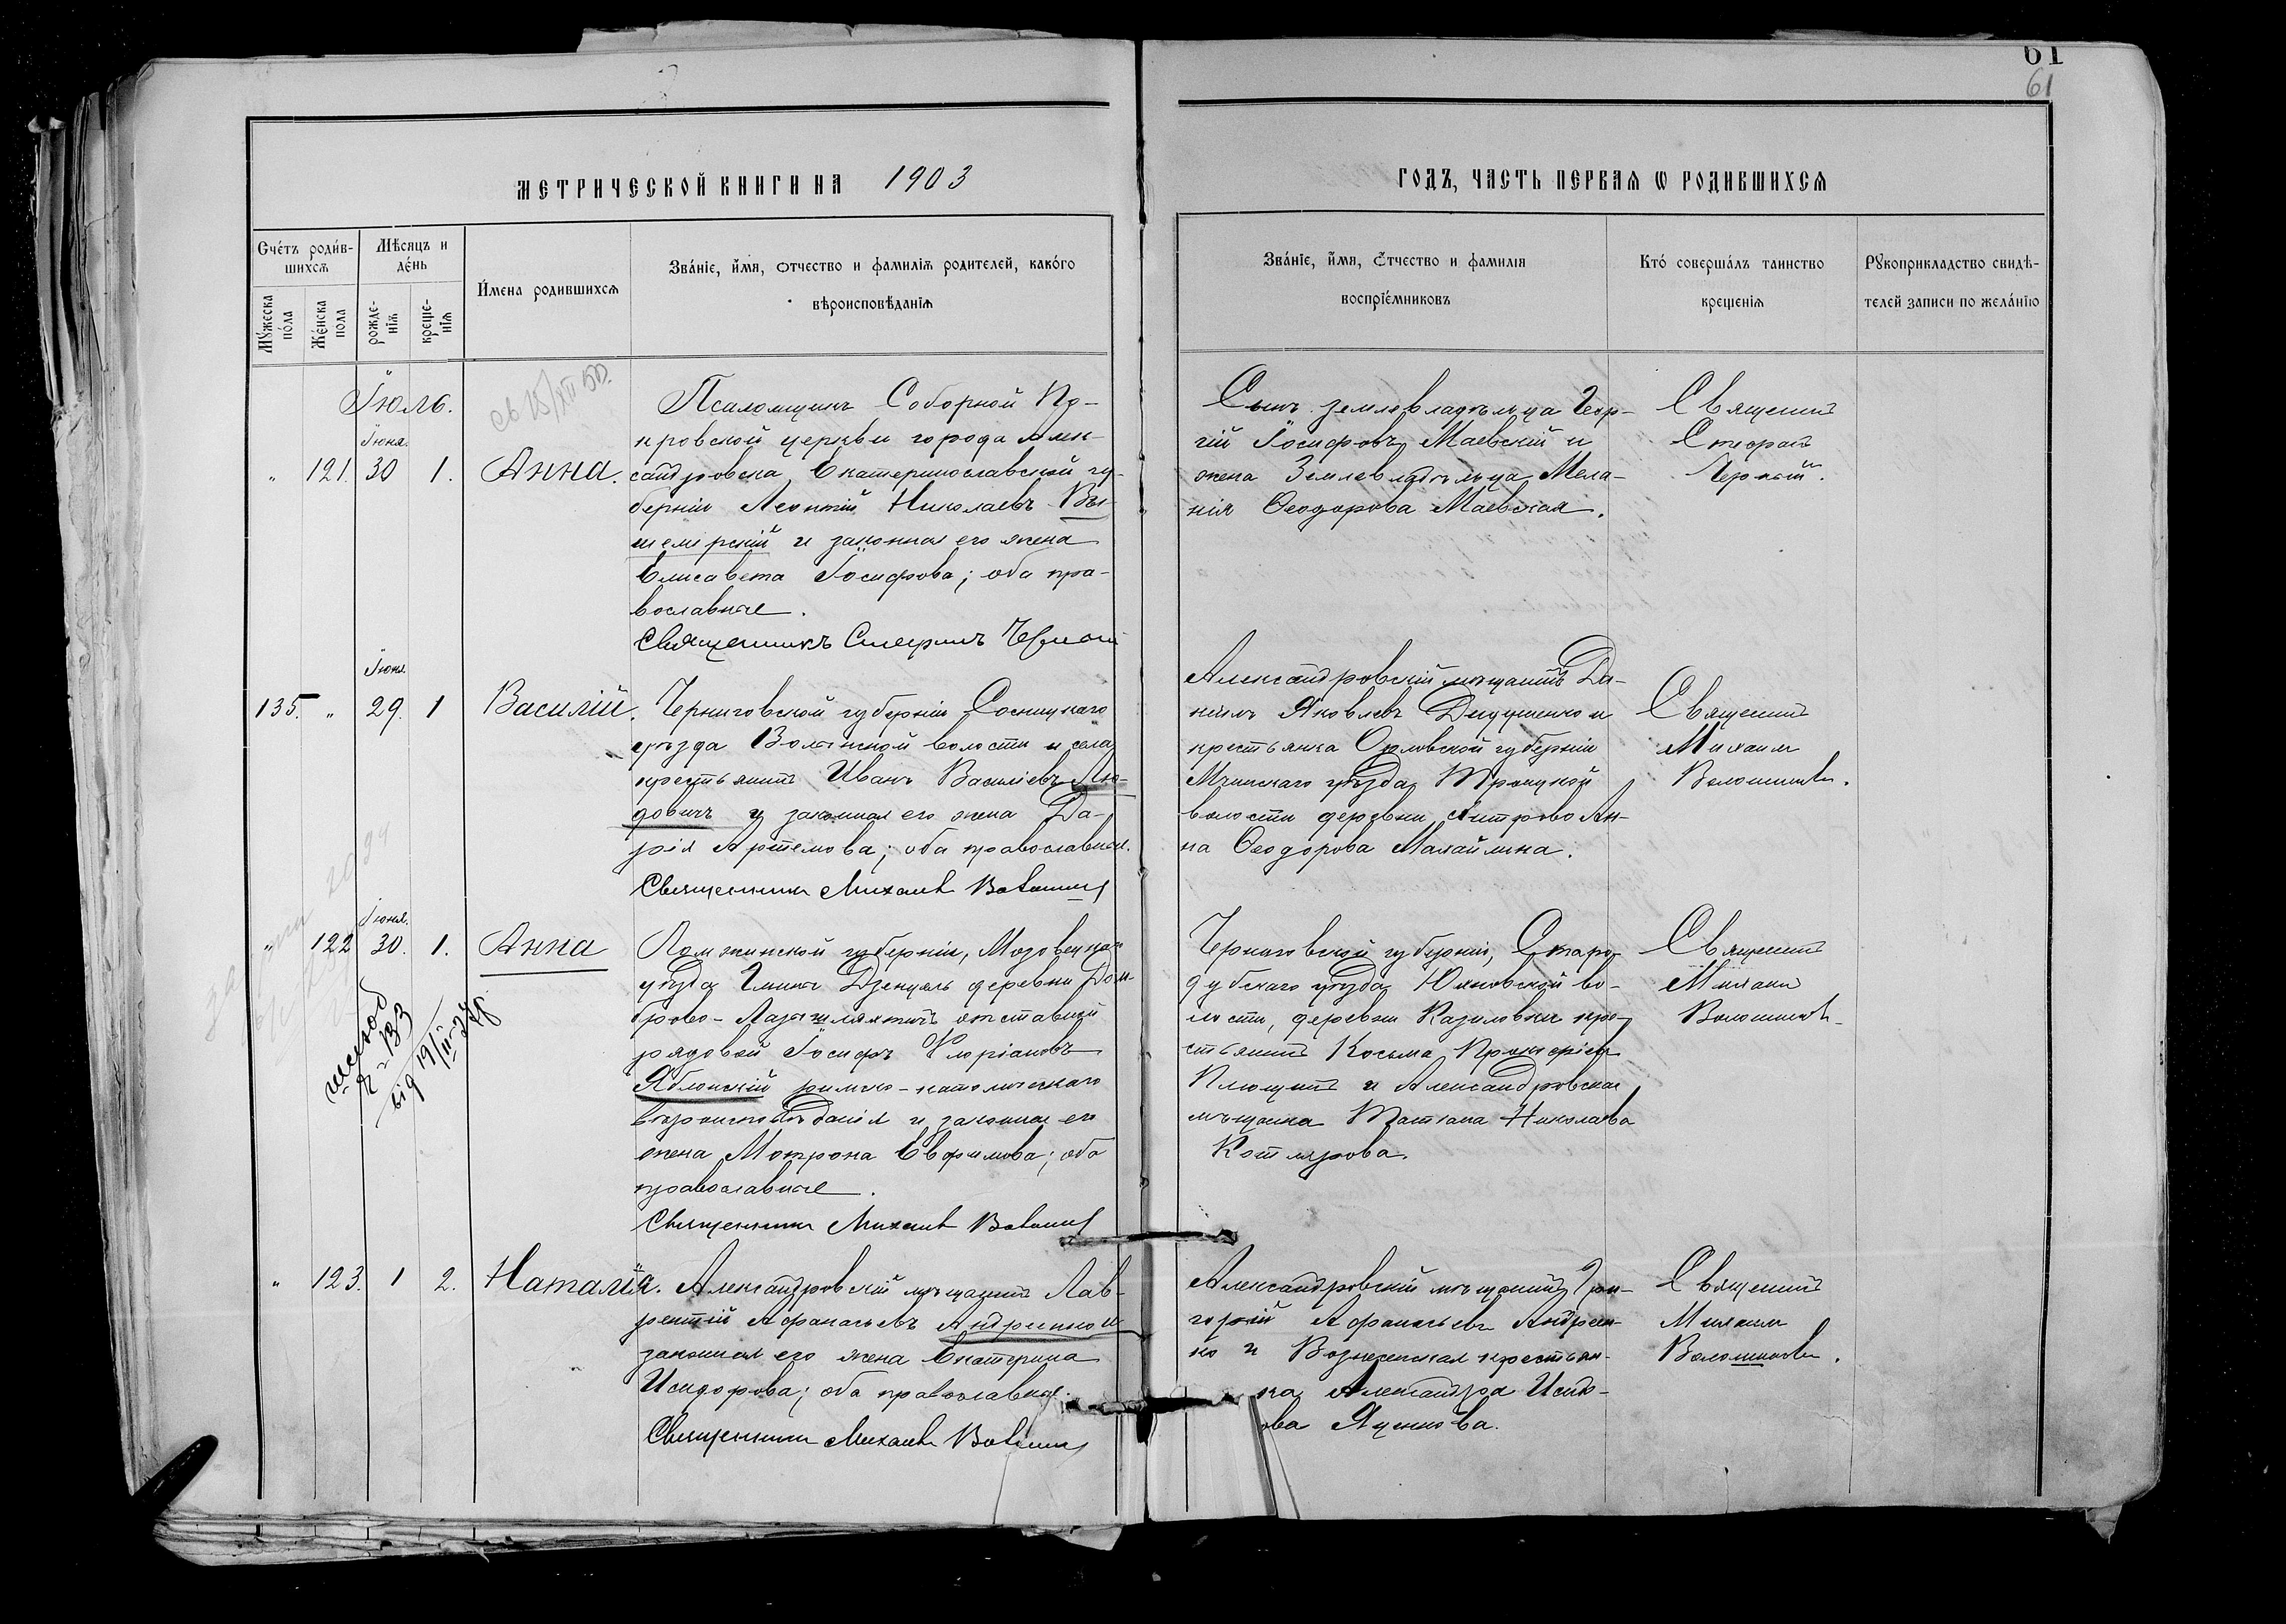 61
61
МЕТРИЧЕСКОЙ КНИГИ НА 1903
ГОДЪ, ЧАСТЬ ПЕРВАЯ Ѡ РОДИВШИХСЯ
Счетъ родив-
шихся
Мѣсяцъ и
день
Мужеска
пола
Женска
пола
рожде-
нія
креще-
нія
Имена родившихся
Званіе, имя, отчество и фамилія родителей, какого
вѣроисповѣданія
Званіе, имя, отчество и фамилія
воспріемниковъ
Кто совершалъ таинство
крещенія
Рукоприкладство свидѣ-
телей записи по желанію
Іюль.
Іюня.
„ 121. 30 1. Анна.
Псаломщикъ Соборной По-
кровской церкви города Алек-
сандровска Екатеринославской гу-
берніи Леонтій Николаевъ Вы-
шемірскій и законная его жена
Елисавета Іосифова; оба пра-
вославные.
Священникъ Стефанъ Черный
Сынъ землевладѣльца Геор-
гій Іосифовъ Маевскій и
жена Землевладѣльца Мела-
нія Ѳеодорова Маевская.
Священникъ
Стефанъ
Черный.
Іюня.
135. „ 29. 1 Василій.
Черниговской губерніи Сосницкаго
уѣзда Волынской волости и села
крестьянинъ Иванъ Василіевъ Лю-
довичъ и законная его жена Да-
рія Артемова; оба православные.
Священникъ Михаилъ Волошинов
Александровскій мѣщанинъ Да-
ніилъ Яковлевъ Дидушенко и
крестьянка Орловской губерніи
Мценскаго уѣзда, Троицкой
волости деревни Ан-
на Ѳеодорова Малайлина.
Священникъ
Михаилъ
Волошиновъ.
Іюня.
„ 122 30. 1. Анна
Ломжинской губерніи, Мазовецкаго
уѣзда Гмина Дзенцель деревни Дом-
брово- отставной
рядовой Іосифъ Флоріановъ
Яблонскій римско-католическаго
вѣроисповѣданія и законная его
жена Матрона Евфимова; оба
православные.
Священникъ Михаилъ Волошинов
Черниговской губерніи, Старо-
дубскаго уѣзда Юхновской во-
лости, деревни Казиловки кре-
стьянинъ Косьма Прокофіевъ
Плющинъ и Александровская
мѣщанка Татіана Николаева
Котлярова.
Священникъ
Михаилъ
Волошиновъ
„ 123. 1 2. Наталія.
Александровскій мѣщанинъ Лав-
рентій Афанасьевъ Андриенко и
законная его жена Екатерина
Исидорова; оба православные.
Священникъ Михаилъ Волошинов
Александровскій мѣщанинъ Гри-
горій Афанасьевъ Андриен-
ко и Вознесенская крестьян-
ка Александра Исидо-
ова Яценкова.
Священникъ
Михаилъ
Волошиновъ.